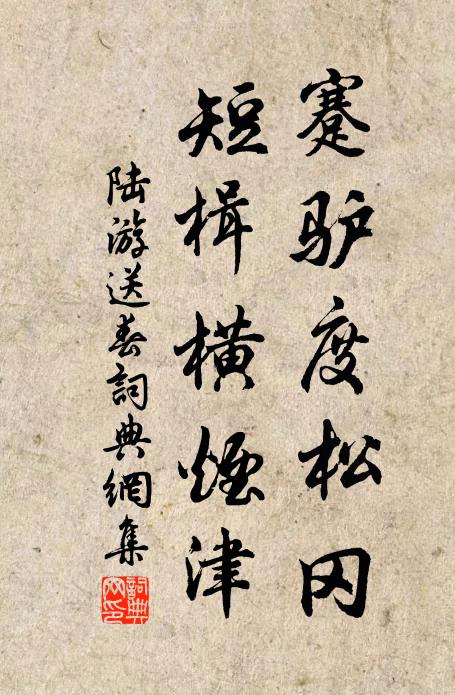 蹇驴度松冈
短楫横煙津
陆游送春詞典網集
詞典网印